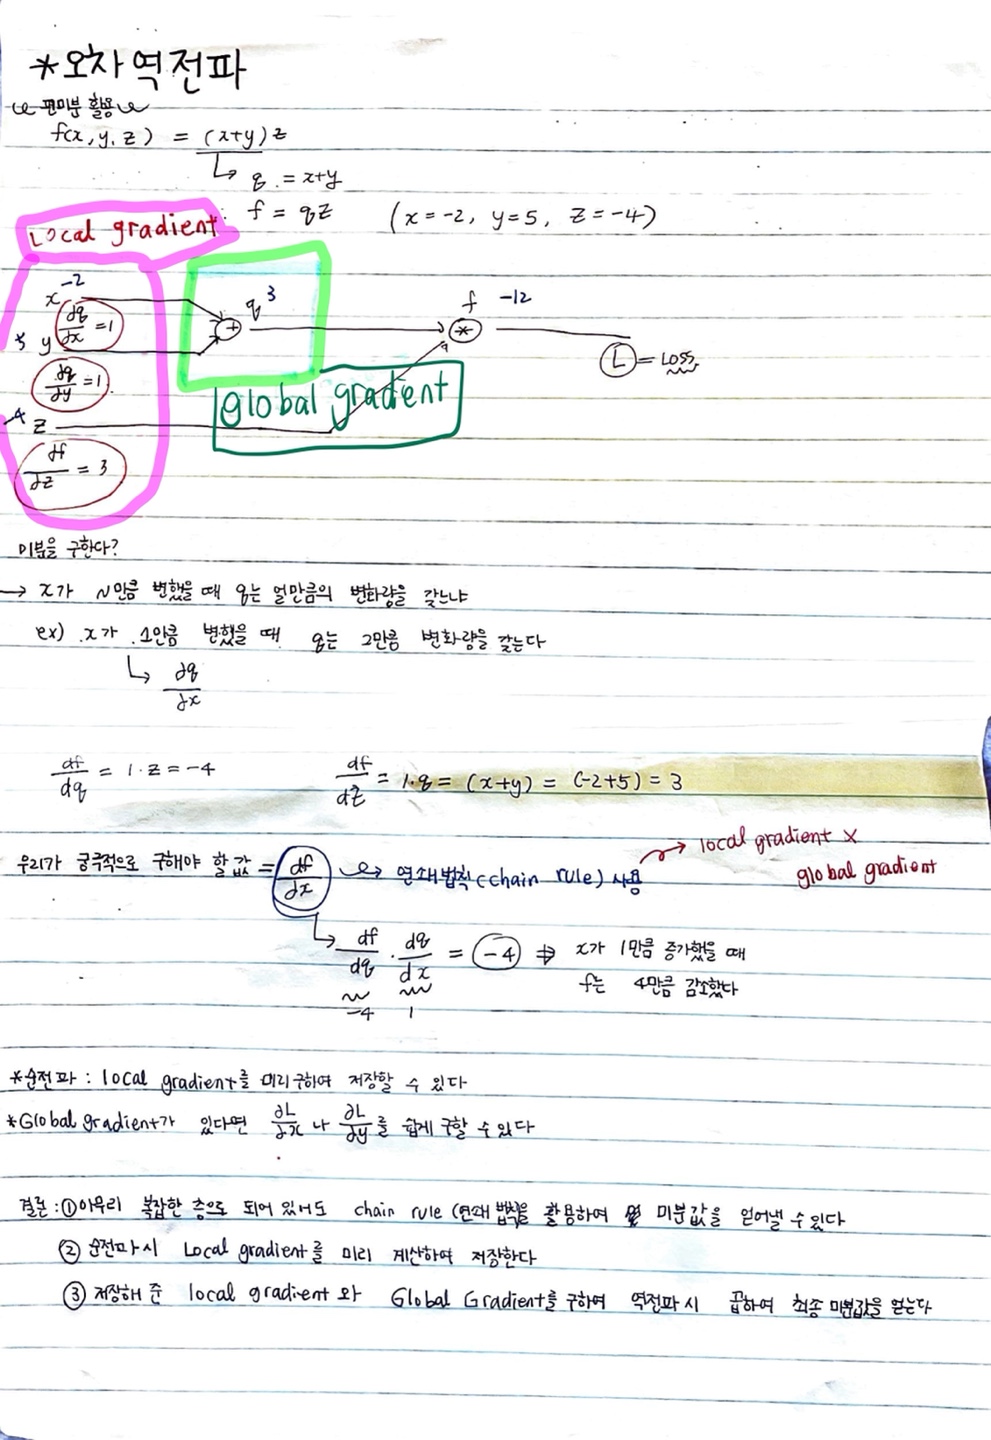 *오차역전파
편미분 활용
f(x, y, z) = (x+y)z
↳ q = x+y
f = qz (x=-2, y=5, z=-4)
Local gradient
x -2
∂q/∂x = 1
5 y
∂q/∂y = 1
-4 z
∂f/∂z = 3
+
q 3
Global gradient
f -12
*
L = Loss
미분을 구한다?
→ x가 N만큼 변했을 때 q는 얼만큼의 변화량을 갖느냐
ex) x가 1만큼 변했을 때 q는 2만큼 변화량을 갖는다
↳ ∂q/∂x
df/dq = 1·z = -4 df/dz = 1·q = (x+y) = (-2+5) = 3
우리가 궁극적으로 구해야 할 값 = df/dx → 연쇄법칙(chain rule) 사용 → local gradient x
global gradient
↳ df/dq · dq/dx = -4 ⇒ x가 1만큼 증가했을 때
f는 4만큼 감소했다
-4 1
*순전파 : local gradient를 미리 구하여 저장할 수 있다
*Global gradient가 있다면 ∂L/∂x 나 ∂L/∂y를 쉽게 구할 수 있다
결론 : ① 아무리 복잡한 층으로 되어 있어도 chain rule (연쇄 법칙)을 활용하여 미분값을 얻어낼 수 있다
② 순전파시 Local gradient를 미리 계산하여 저장한다
③ 저장해 준 local gradient 와 Global Gradient를 구하여 역전파시 곱하여 최종 미분값을 얻는다